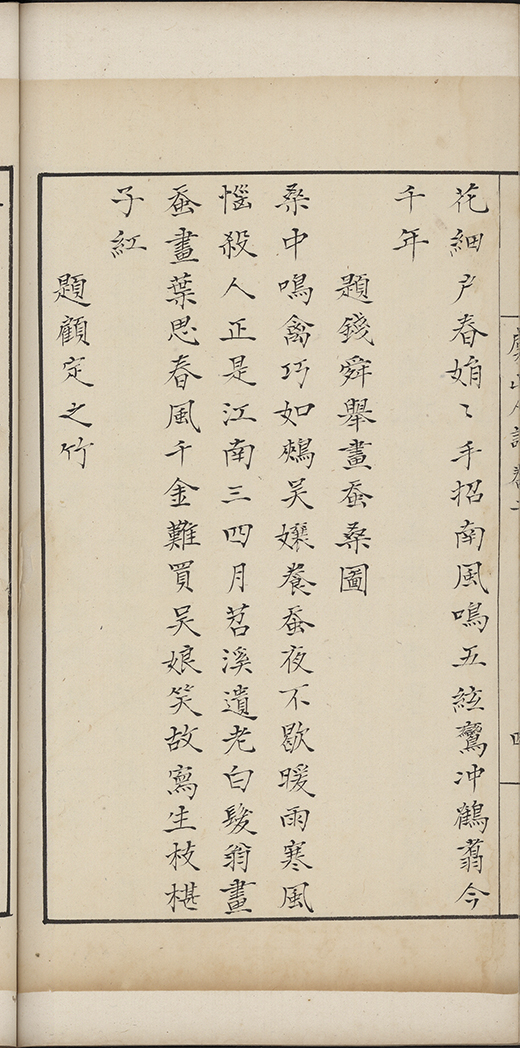 花細戶春娟〻手招南風鳴五絃鸞冲鶴翥今
千年
題錢舜舉畫蚕桑圖
桑中鳴禽巧如鵊吴孃養蚕夜不歇暖雨寒風
惱殺人正是江南三四月苕溪遺老白髮翁畫
蚕畫葉思春風千金難買吴娘笑故寫生枝椹
子紅
題顧定之竹